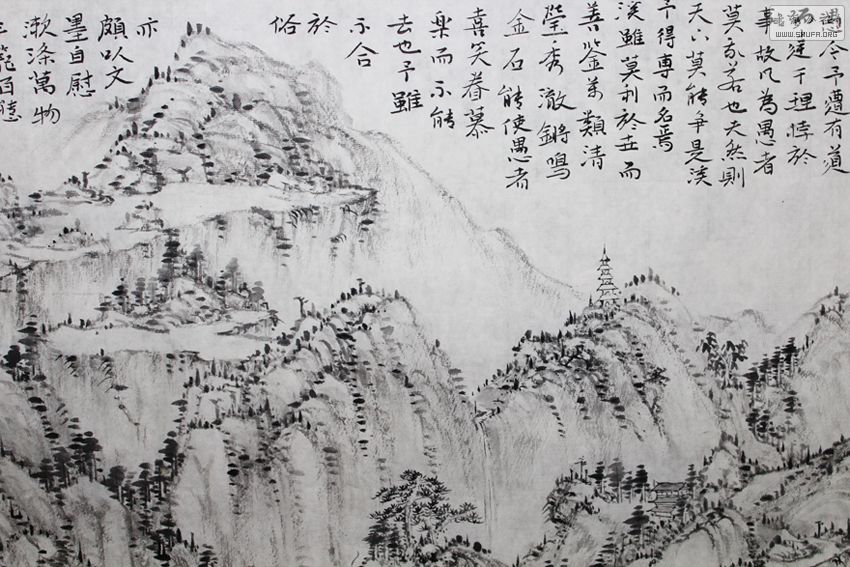 今予遭有道
違于理悖於
事故凡為愚者
莫我若也夫然則
天下莫能爭是溪
予得專而名焉
溪雖莫利於世而
善鑒萬類清
瑩秀澈鏘鳴
金石能使愚者
喜笑眷慕
樂而不能
去也予雖
不合
於
俗
亦
頗以文
墨自慰
漱滌萬物
籠百態
WWW.SHUFA.ORG